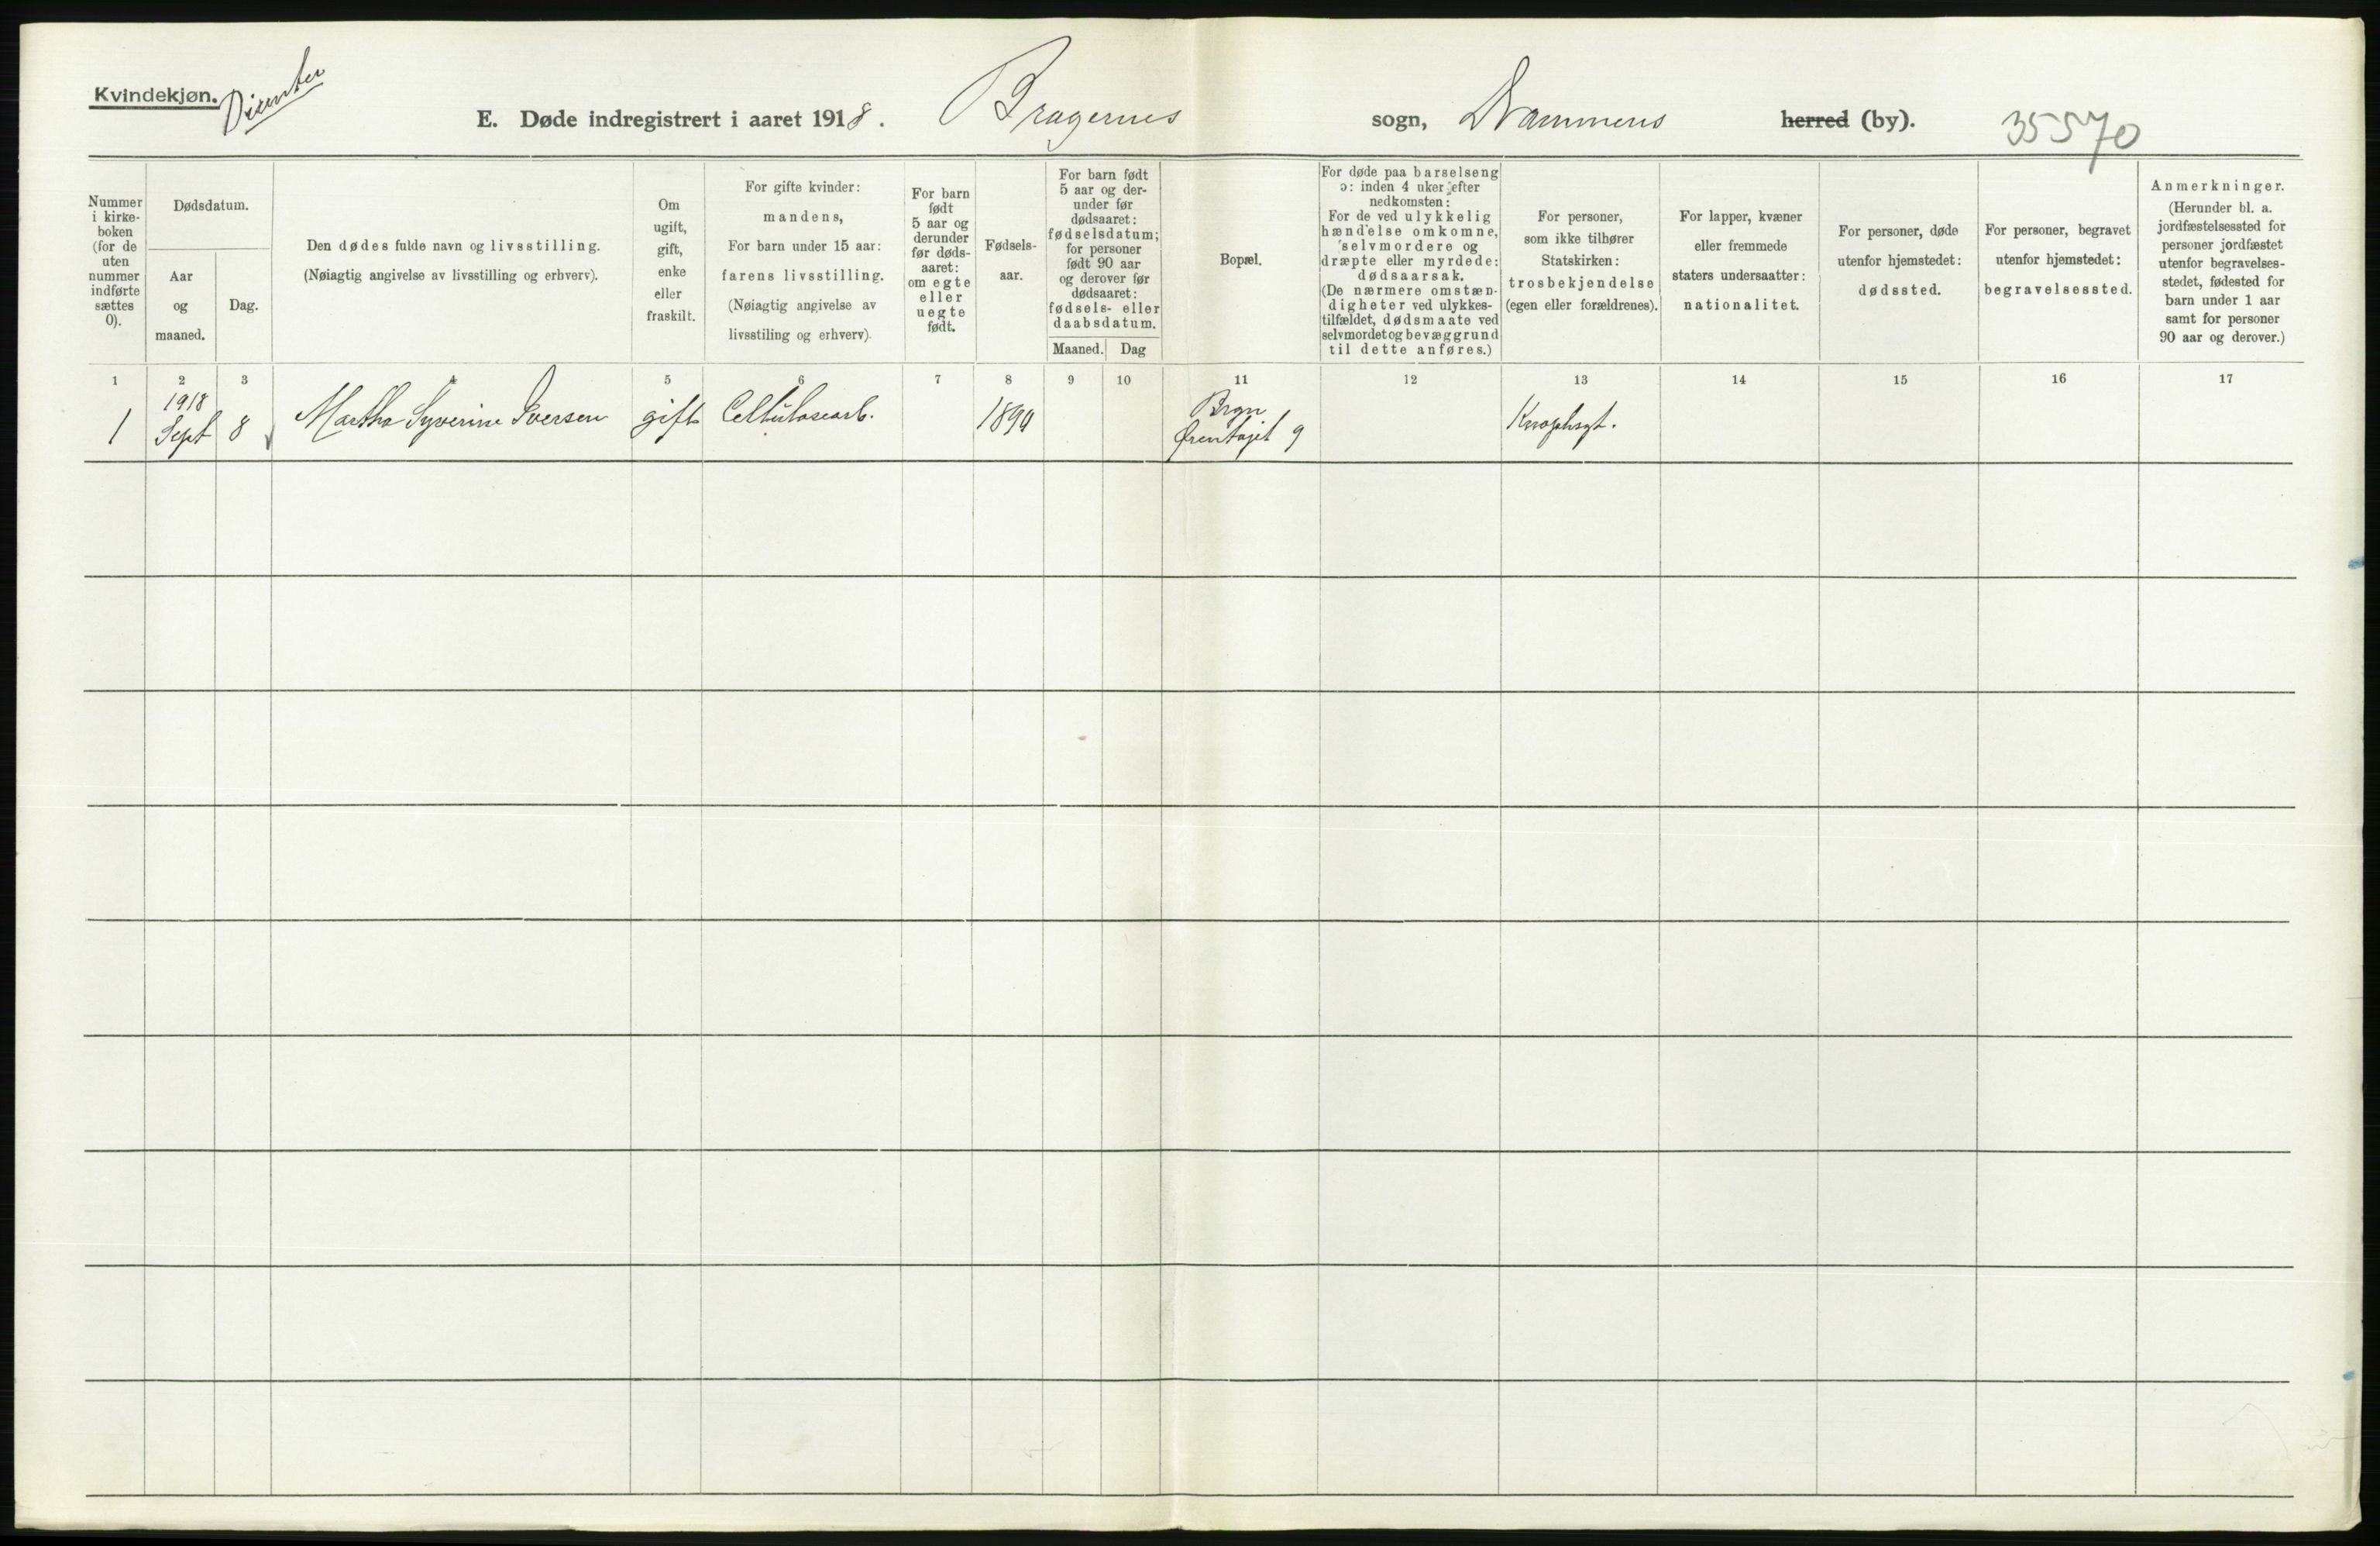 Kvindekjøn.
E. Døde indregistrert i aaret 1918. Bragernes sogn, Drammens herred (by). 35570
Nummer i kirke-
boken
(for de
uten
nummer
indførte
sættes
0).
Dødsdatum.
Aar
og
maaned.
Dag.
Den dødes fulde navn og livsstilling.
(Nøiagtig angivelse av livsstilling og erhverv).
Om
ugift,
gift,
enke
eller
fraskilt.
For gifte kvinder:
mandens,
For barn under 15 aar:
farens livsstilling.
(Nøiagtig angivelse av
livsstiling og erhverv).
For barn
født
5 aar og
derunder
før døds-
aaret:
om egte
eller
uegte
født.
Fødsels-
aar.
For barn født
5 aar og der-
under før
dødsaaret:
fødselsdatum;
for personer
født 90 aar
og derover før
dødsaaret:
fødsels- eller
daabsdatum.
Maaned. Dag
Bopæl.
For døde paa barselseng
ɔ: inden 4 uker efter
nedkomsten:
For de ved ulykkelig
hændelse omkomne,
selvmordere og
dræpte eller myrdede:
dødsaarsak.
(De nærmere omstæn-
digheter ved ulykkes-
tilfældet, dødsmaate ved
selvmordet og bevæggrund
til dette anføres.)
For personer,
som ikke tilhører
Statskirken:
trosbekjendelse
(egen eller forældrenes).
For lapper, kvæner
eller fremmede
staters undersaatter:
nationalitet.
For personer, døde
utenfor hjemstedet:
dødssted.
For personer, begravet
utenfor hjemstedet:
begravelsessted.
Anmerkninger.
(Herunder bl. a.
jordfæstelsessted for
personer jordfæstet
utenfor begravelses-
stedet, fødested for
barn under 1 aar
samt for personer
90 aar og derover.)
1 2 3 4 5 6 7 8 9 10 11 12 13 14 15 16 17
1 1918
Sept 8 Martha Syverine Iversen gift Cellulosearb. 1894 Brgn
Ørentoget 9